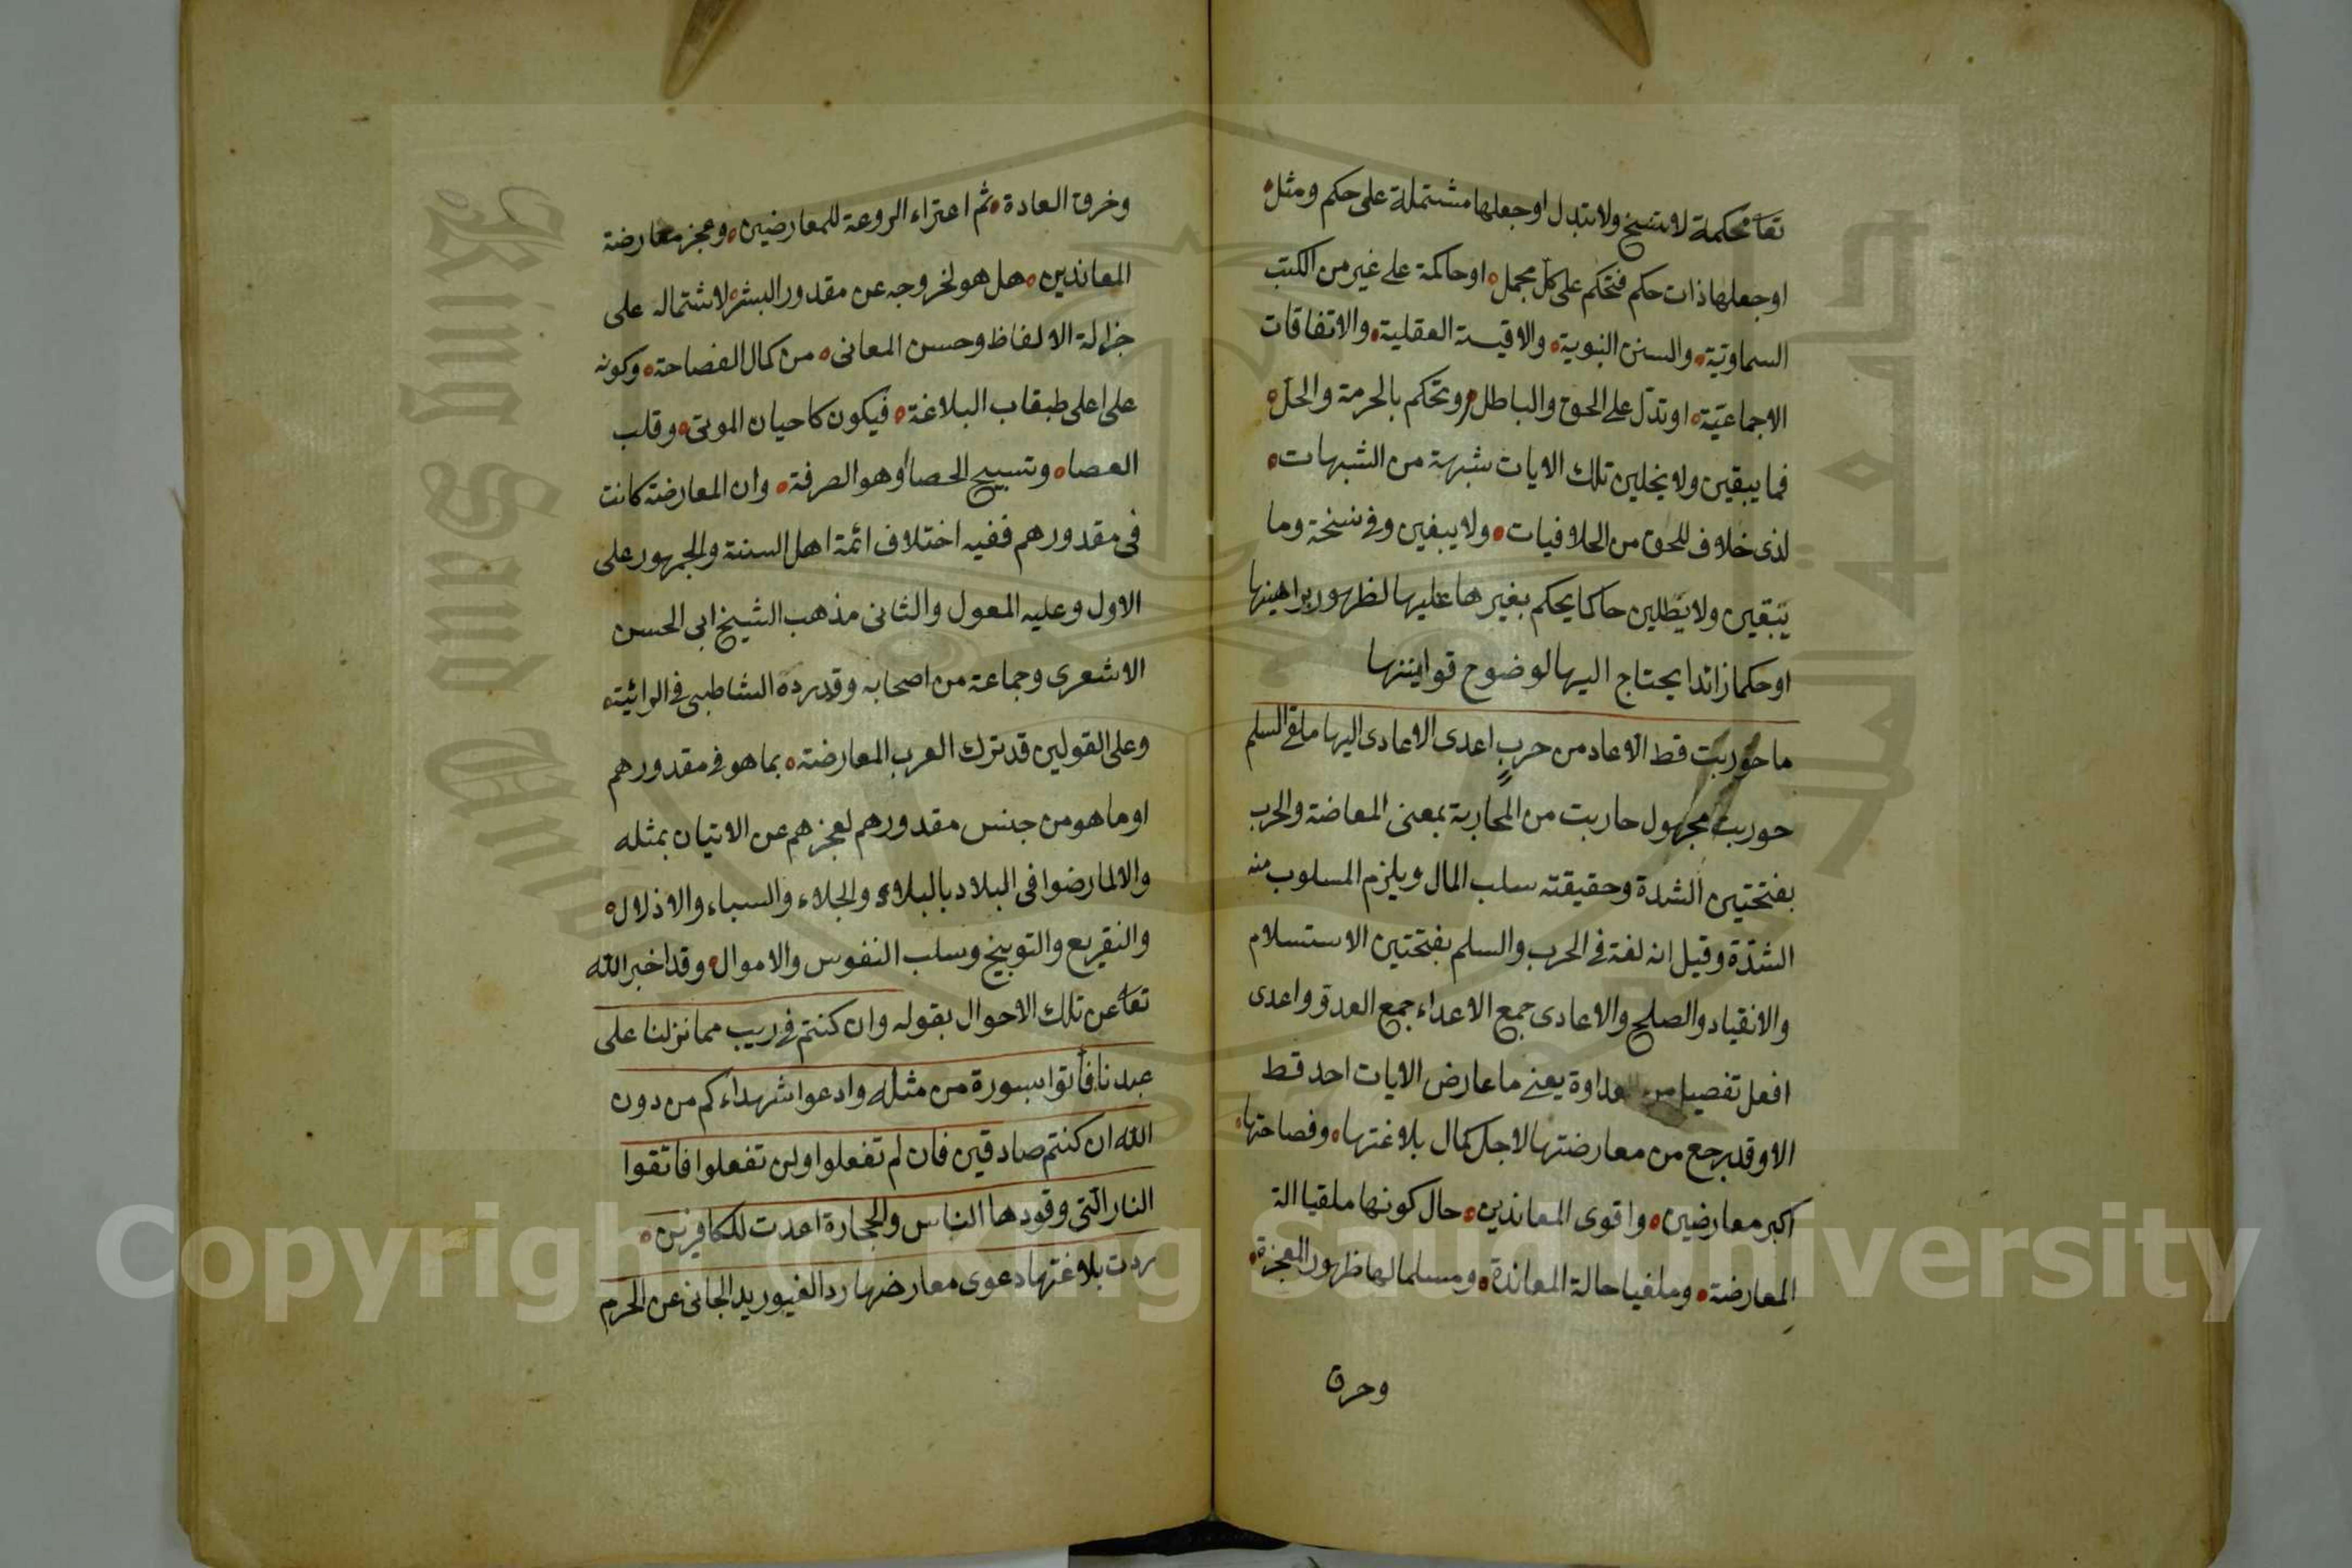 تعا محكمة لا تنسخ ولا تتبدل او جعلها مشتملة على حكم ومثل
او جعلها ذات حكم فتحكم على كل مجمل او حاكمة على غير من الكتب
السماوية والسنن النبوية والاقيسة العقلية والاتفاقات
الاجماعية او تدل على الحق والباطل وتحكم بالحرمة والحل
فما يبقين ولا يخلين تلك الايات شبهة من الشبهات
لذى خلاف للحق من الخلافيات ولا يبغين وفي نسخة وما
يبقين ولا يطلبن حاكما يحكم بغيرها عليها لظهور براهينها
او حكما زائدا يحتاج اليها لوضوح قوانينها
ما حوربت قط الا عاد من حرب اعدى الاعادى اليها ملقي السلم
حوربت مجهول حاربت من المحاربة بمعنى المعاضة والحرب
بفتحتين الشدة وحقيقته سلب المال ويلزم المسلوب منه
الشدة وقيل انه لغة في الحرب والسلم بفتحتين الاستسلام
والانقياد والصلح والاعادى جمع الاعداء جمع العدو واعدى
افعل تفصيل من العداوة يعني ما عارض الايات احد قط
الا وقد رجع من معارضتها لاجل كمال بلاغتها وفصاحتها
اكبر معارضين واقوى المعاندين حال كونها ملقيا الة
المعارضة وملغيا حالة المعاندة ومسلما لها ظهور المعجزة
وخرق
وخرق العادة ثم اعتراء الروعة للمعارضين وعجز معارضة
المعاندين هل هو لخروجه عن مقدور البشر لاشتماله على
جزالة الالفاظ وحسن المعانى من كمال الفصاحة وكونه
على اعلى طبقاب البلاغة فيكون كاحيان الموتى وقلب
العصا وتسبيح الحصا أو هو الصرفة وان المعارضة كانت
فى مقدورهم ففيه اختلاف ائمة اهل السنة والجمهور على
الاول وعليه المعول والثانى مذهب الشيخ ابى الحسن
الاشعرى وجماعة من اصحابه وقد رده الشاطبى في الرائية
وعلى القولين قد ترك العرب المعارضة بما هو في مقدورهم
او ما هو من جنس مقدورهم لعجزهم عن الاتيان بمثله
والا لما رضوا فى البلاد بالبلاء والجلاء والسباء والاذلال
والتقريع والتوبيخ وسلب النفوس والاموال وقد اخبر الله
تعا عن تلك الاحوال بقوله وان كنتم في ريب مما نزلنا على
عبدنا فأتوا بسورة من مثله وادعوا شهداءكم من دون
الله ان كنتم صادقين فان لم تفعلوا ولن تفعلوا فاتقوا
النار التى وقودها الناس والحجارة اعدت للكافرين
ردت بلاغتها دعوى معارضها رد الغيور يد الجانى عن الحرم
Copyright © King Saud University